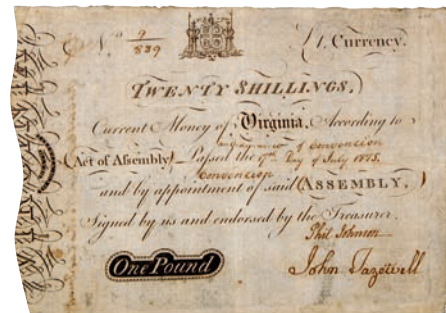 No. 9
839
£1. Currency.
TWENTY SHILLINGS,
Current Money of Virginia, According to
of Convencion
(Act of Assembly) Passed the 17th Day of July 1775.
Convencion
and by appointment of said (ASSEMBLY,)
Signed by us and endorsed by the Treasurer.
Phil Johnson
One Pound
John Tazewell